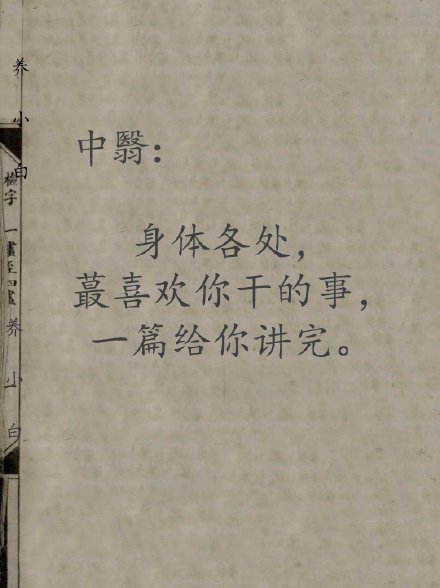 中翳：
身体各处，
蕞喜欢你干的事，
一篇给你讲完。
养
小
白
一畫至四畫
养
小
白